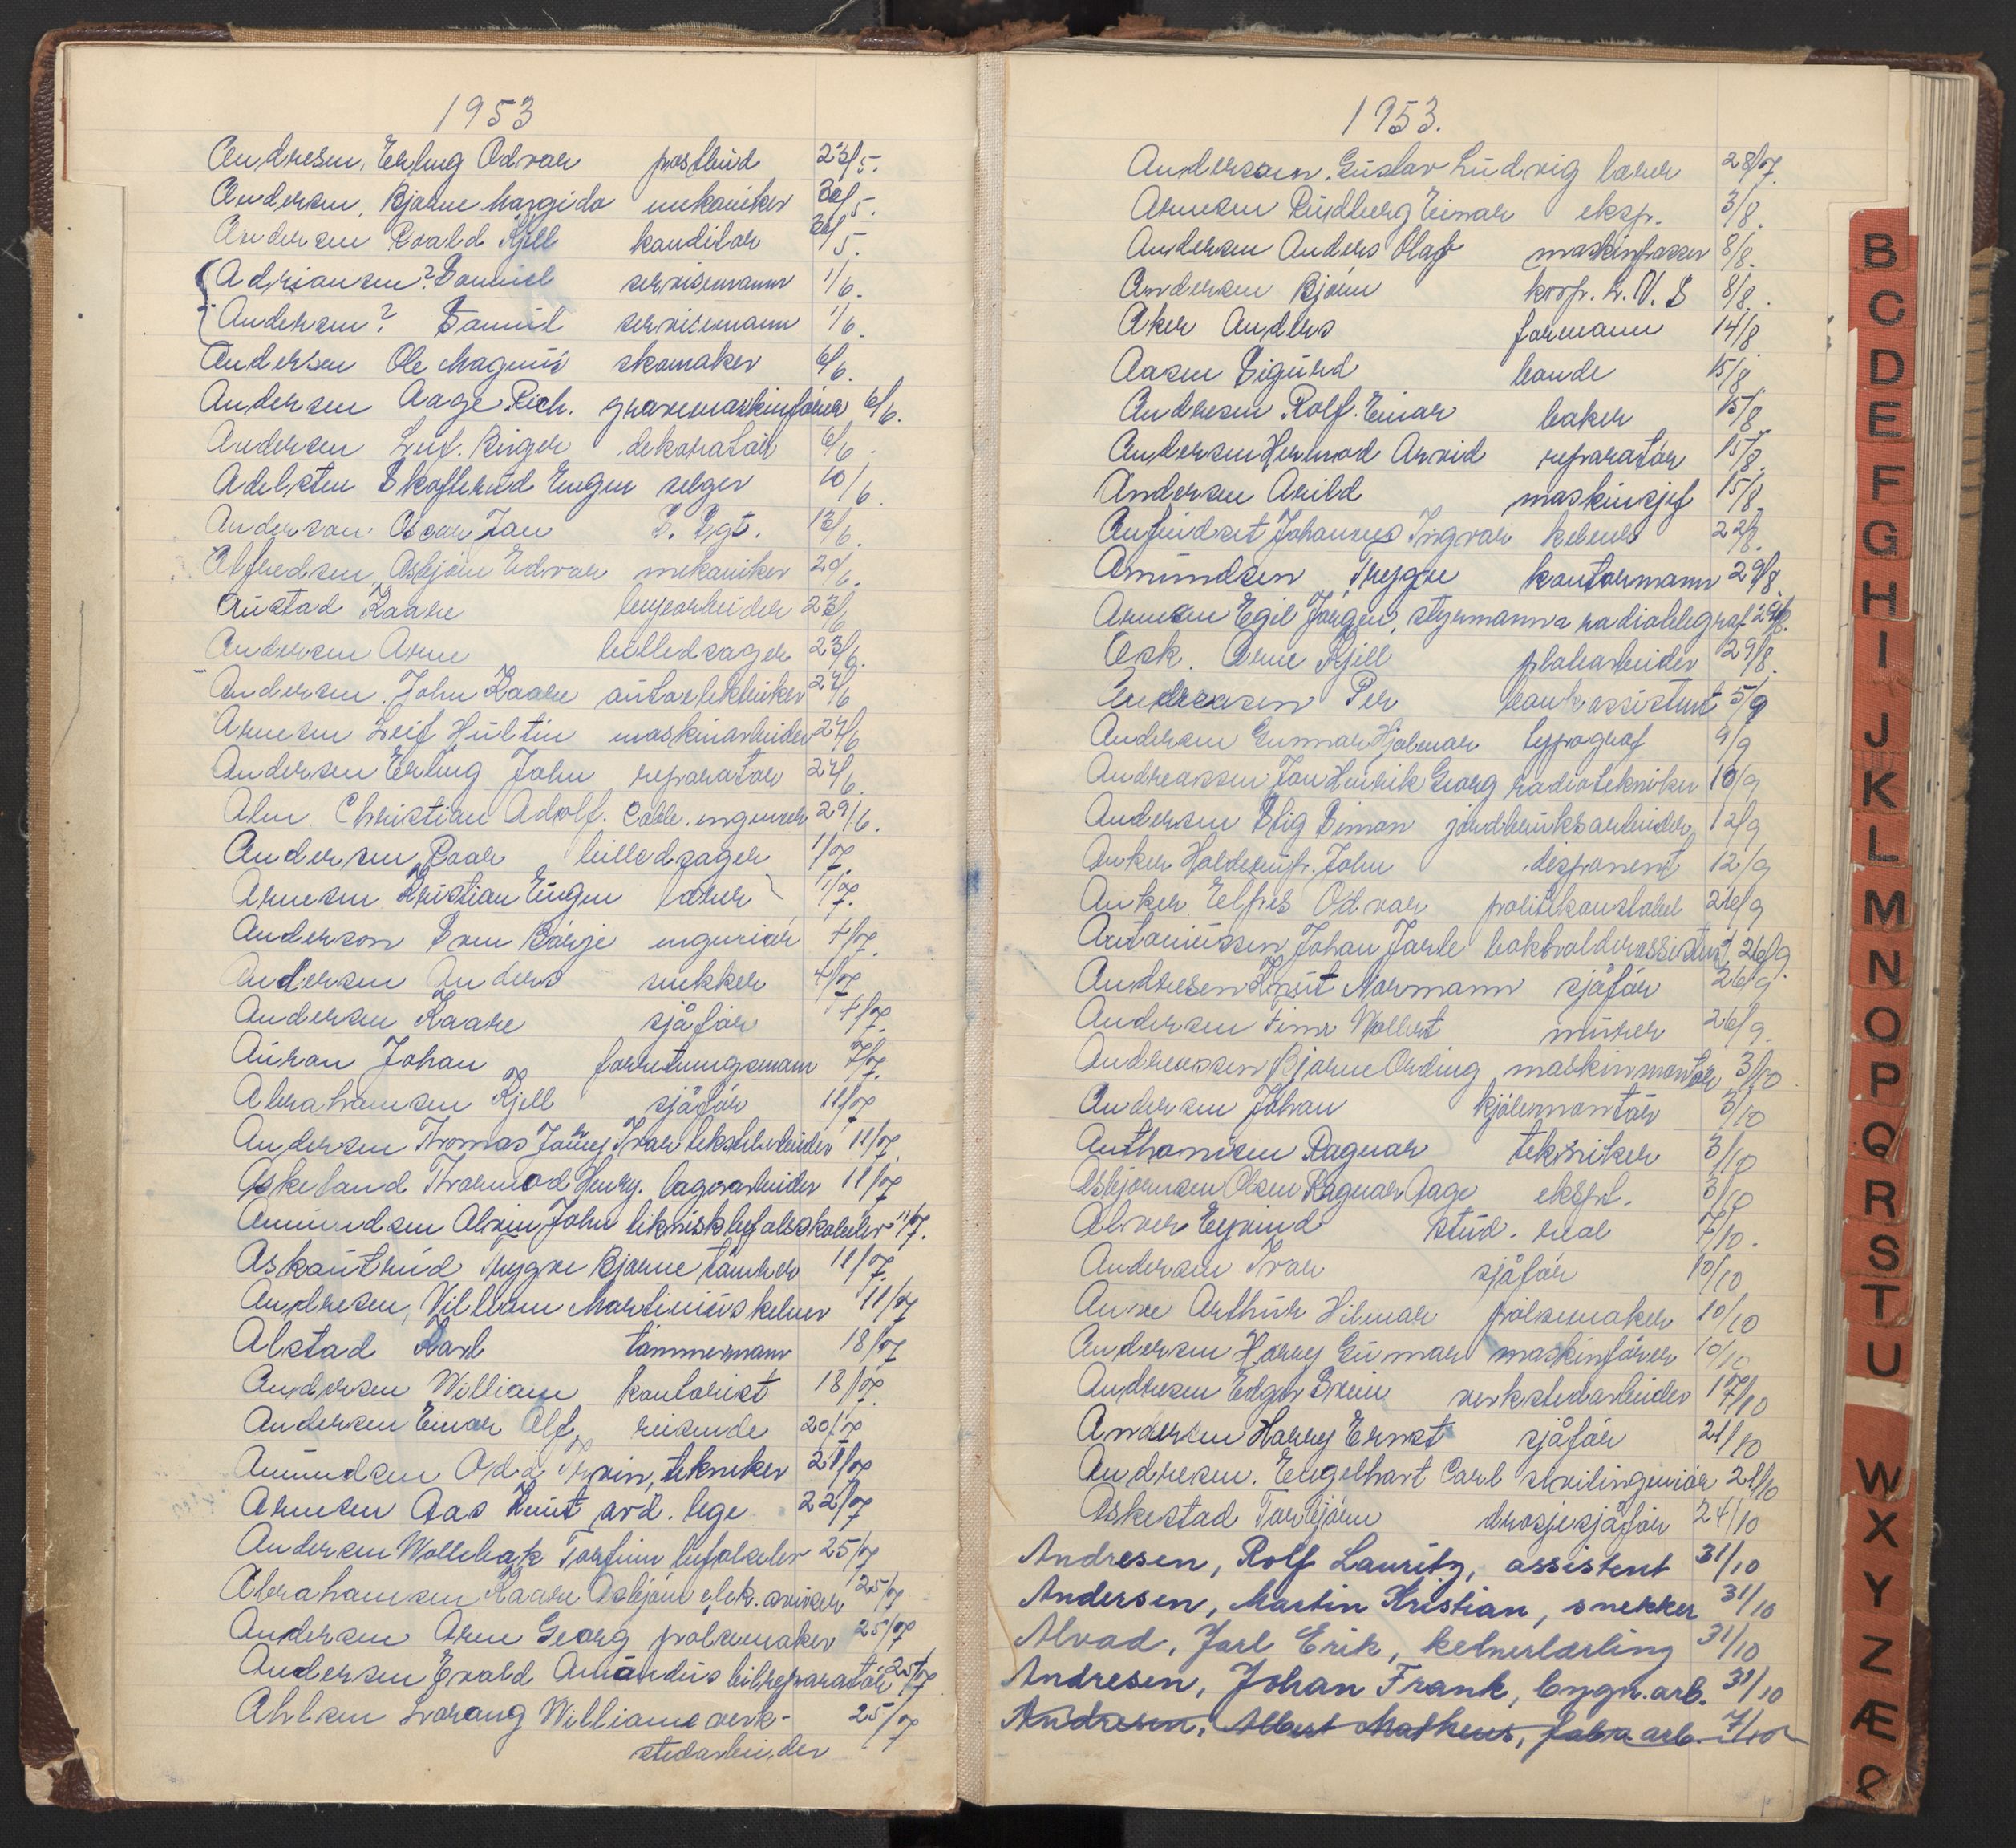 1953
Andresen, Erling Odvar postbud 23/5.
Andersen, Bjarne Margido mekaniker 30/5.
Andersen Roald Kjell konditor 30/5.
Adriansen? Daniel servisemann 1/6.
Andersen? Daniel servisemann 1/6.
Andersen Ole Magnus skomaker 6/6.
Andersen Aage Rich. gravemaskinfører 6/6.
Andersen Leif. Birger dekoratør 6/6.
Adelsten Skofterud Eugen selger 10/6.
Anderson Oscar Jan S. Sgt. 13/6.
Alfredsen, Asbjørn Edvar mekaniker 20/6.
Austad Kaare 23/6
Andersen Arne billedsager 23/6.
Andersen. John Kaare autoelektriker 27/6
Arnesen Leif Hultin maskinarbeider 27/6
Andersen Erling John reparatør 27/6.
Alm Christian Adolf. Calle. ingeniør 29/6.
Andersen Roar billedsager 1/7.
Arnesen Kristian Eugen lærer 1/7.
Anderson Sven Børje ingeniør 4/7.
Andersen Anders snekker 4/7
Andersen Kaare sjåfør 4/7.
Auran Johan forretningsmann 7/7.
Abrahamsen Kjell sjåfør 11/7
Andersen Thomas Jonny Ivar tekstilarbeider 11/7.
Askeland Thormod Henry. lagerarbeider 11/7
Amundsen Alvin John teknisk befalsskoleelev 11/7.
Askautrud Trygve Bjarne tømrer 11/7.
Andresen, Villiam Martinius kelner 11/7
Alstad Karl tømmermann 18/7
Andersen William kontorist 18/7.
Andersen Einar Alf, reisende 20/7
Amundsen Odd Arvin, tekniker 21/7
Arnesen Aas Knut avd. lege 22/7
Andersen Wollebæk Torfinn befalselev 25/7
Abrahamsen Kaare Asbjørn elek. sveiser 25/7
Andersen Arne Georg pølsemaker 25/7
Andersen Evald Amandus bilreparatør 25/7
Ahlsen Lorang Williame verk-
stedarbeider 25/7
1953.
Anderssen. Gustav Ludvig lærer 28/7.
Arnesen Rudberg Einar eksp. 3/8.
Andersen Anders Olaf maskinpasser 8/8.
Andersen Bjørn korp. L.V.S 8/8.
Aker Anders formann 14/8
Aasen Sigurd bonde 15/8.
Andresen Rolf. Einar baker 15/8
Andersen Hermod Arvid reparatør 15/8.
Andersen Arild maskinsjef 15/8.
Anfindset Johannes Ingvar kelner 22/8.
Amundsen Trygve kontormann 29/8.
Arnesen Egil Jørgen, styrmann & radiotelegraf. 29/8.
Ask. Arne Kjell platearbeider 29/8.
Andreasen Per bankassistent 5/9
Andersen Gunnar Hjalmar typograf 9/9
Andreassen Jan Henrik Georg radiotekniker 10/9
Andersen Stig Simon jordbruksarbeider, 12/9
Anker John disponent 12/9
Anker Odvar politikonstabel 26/9
Antoniussen, Johan Jarle bokholderassistent, 26/9
Andresen Knut Normann sjåfør 26/9.
Andersen Finn Wollert murer 26/9.
Andreassen Bjarne Ording maskinmontør 3/10.
Andersen Johan kjølemontør 3/10
Anthonisen Ragnar tekniker 3/10
Asbjørnsen Olsen Ragnar Aage eksped. 3/10
Alver Eyvind stud. real 7/10.
Andersen Ivar sjåfør 10/10
Arthur Hilmar pølsemaker 10/10
Andersen Harry Gunnar maskinfører 10/10
Andresen Edgar Svein verkstedarbeider 17/10
Andersen Harry Ernst sjåfør 21/10
Andresen. Engelhart Carl sivilingeniør 21/10
Askestad Torbjørn drosjesjåfør 24/10
Andresen, Rolf Lauritz, assistent 31/10
Andersen, Martin Kristian, snekker 31/10
Alvad, Jarl Erik, kelnerlærling 31/10
Andresen, Johan Frank, bygn.arb. 31/10
Andresen, Albert Matheus, fabr. arb. 7/10
B
C
D
E
F
G
H
I
J
K
L
M
N
O
P
Q
R
S
T
U
W
X
Y
Z
Æ